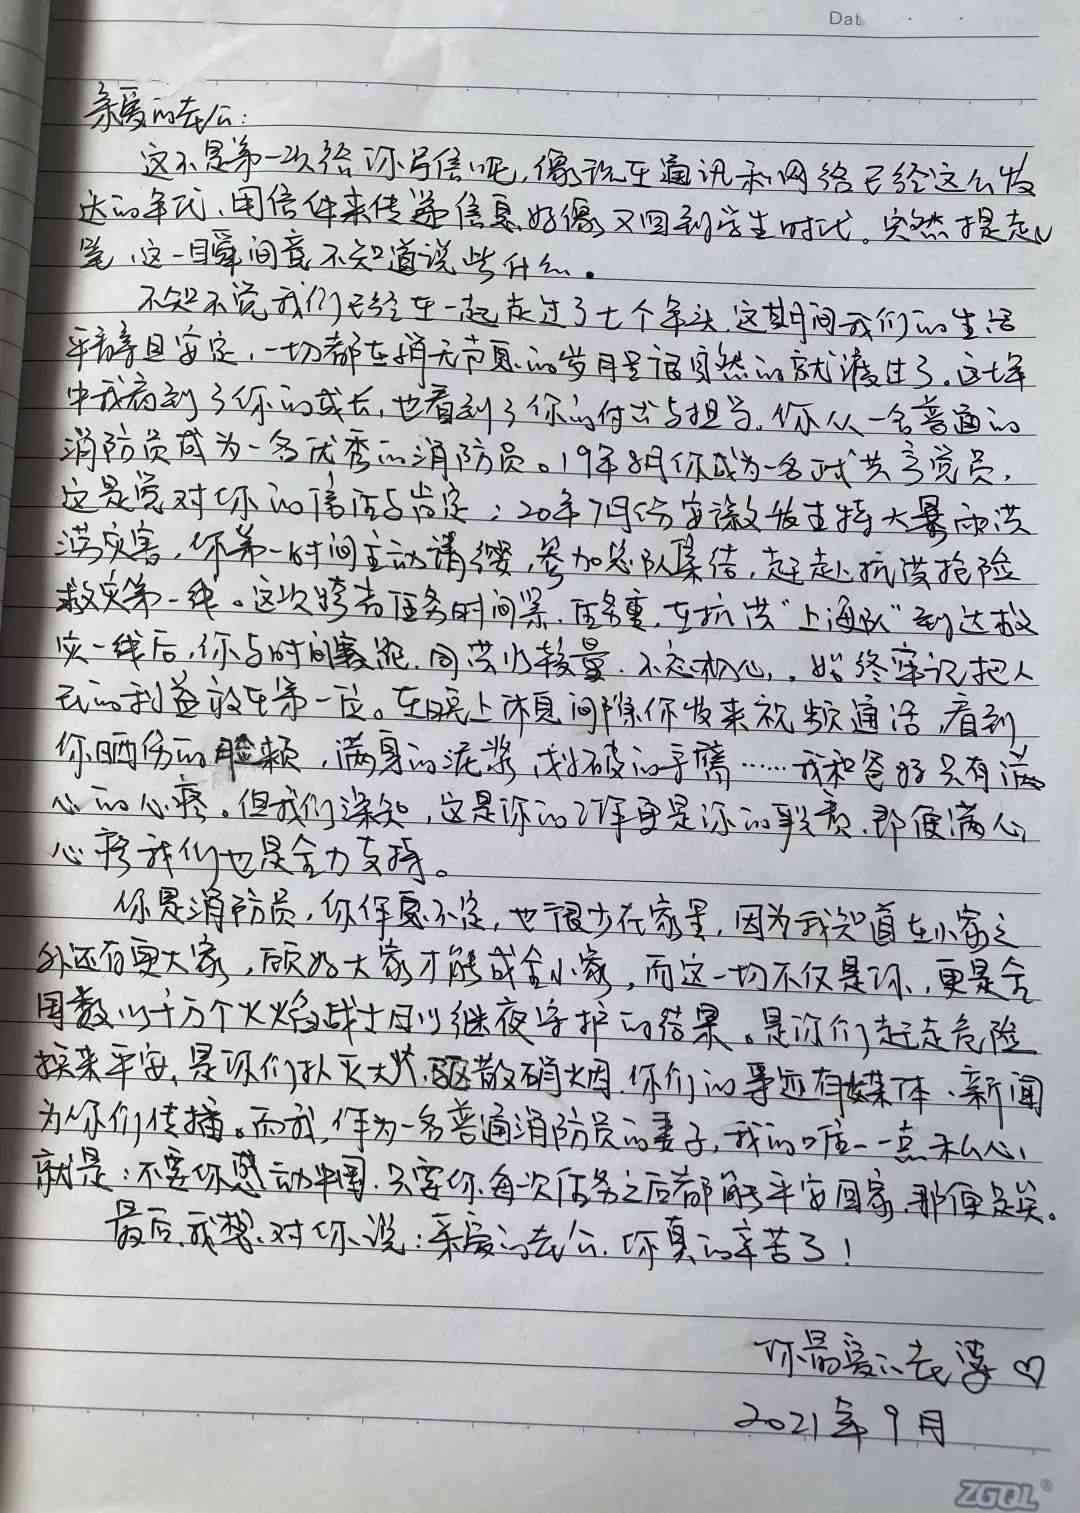 Dat
亲爱的老公：
这不是第一次给你写信呢，像现在通讯和网络已经这么发
达的年代，用信件来传递信息好像又回到学生时代。突然提起
笔，这一瞬间竟不知道说些什么。
不知不觉我们已经在一起走过了七个年头，这期间我们的生活
平静且安定，一切都在悄无声息的岁月里顺其自然的就渡过了。这七年
中我看到了你的成长，也看到了你的付出与担当。你从一名普通的
消防员成为一名优秀的消防员。19年8月你成为一名正式共产党员，
这是党对你的信任与肯定；20年7月份安徽发生特大暴雨洪
涝灾害，你第一时间主动请缨，参加总队集结，赶赴抗洪抢险
救灾第一线。这次跨省任务时间紧，任务重，在抗洪“上海队”到达救
灾一线后，你与时间赛跑，同洪水较量，不忘初心，始终牢记把人
民的利益放在第一位。在晚上休息间隙你发来视频通话，看到
你晒伤的脸颊，满身的泥浆，划破的手臂……我和爸妈只有满
心的心疼。但我们深知，这是你的工作更是你的职责，即便满心
心疼我们也是全力支持。
你是消防员，你作息不定，也很少在家里，因为我知道在小家之
外还有更大家，顾好大家才能成全小家，而这一切不仅是你，更是全
国数以千万个火焰战士日以继夜守护的结果。是你们赶走危险
换来平安，是你们扑灭大火，驱散硝烟，你们的事迹有媒体、新闻
为你们传播。而我，作为一名普通消防员的妻子，我的唯一一点私心，
就是：不要你感动中国，只要你每次任务之后都能平安回家，那便足矣。
最后，我想对你说：亲爱的老公，你真的辛苦了！
你最爱的老婆♡
2021年9月
ZGQL®